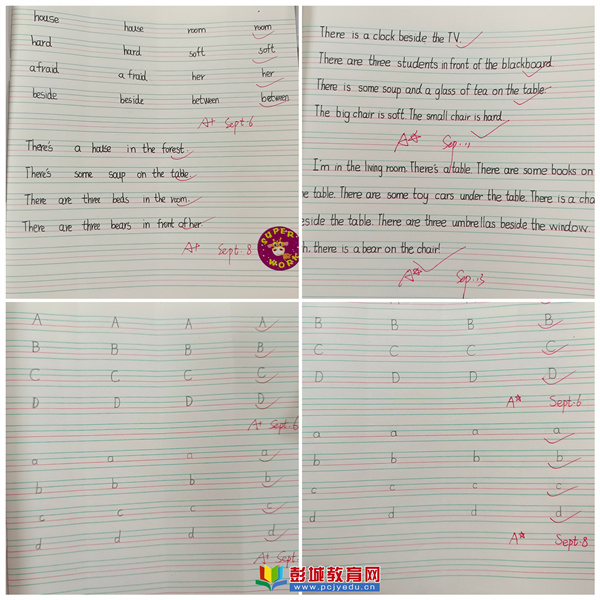 house house room room
hard hard soft soft
afraid afraid her her
beside beside between between
A+ Sept·6
There's a house in the forest.
There's some soup on the table.
There are three beds in the room.
There are three bears in front of her.
A+ Sept·8
SUPER WORK
There is a clock beside the TV.
There are three students in front of the blackboard.
There is some soup and a glass of tea on the table.
The big chair is soft. The small chair is hard.
A☆ Sep.11
I'm in the living room. There's a table. There are some books on
e table. There are some toy cars under the table. There is a cha
eside the table. There are three umbrellas beside the window.
h, there is a bear on the chair!
A☆ Sep.13
A A A A
B B B B
C C C C
D D D D
A+ Sept·6
a a a a
b b b b
c c c c
d d d d
A+ Sept·
B B B B
C C C C
D D D D
A☆ Sept·6
a a a a
b b b b
c c c c
d d d d
A☆ Sept·8
彭城教育网
www.pcjyedu.com